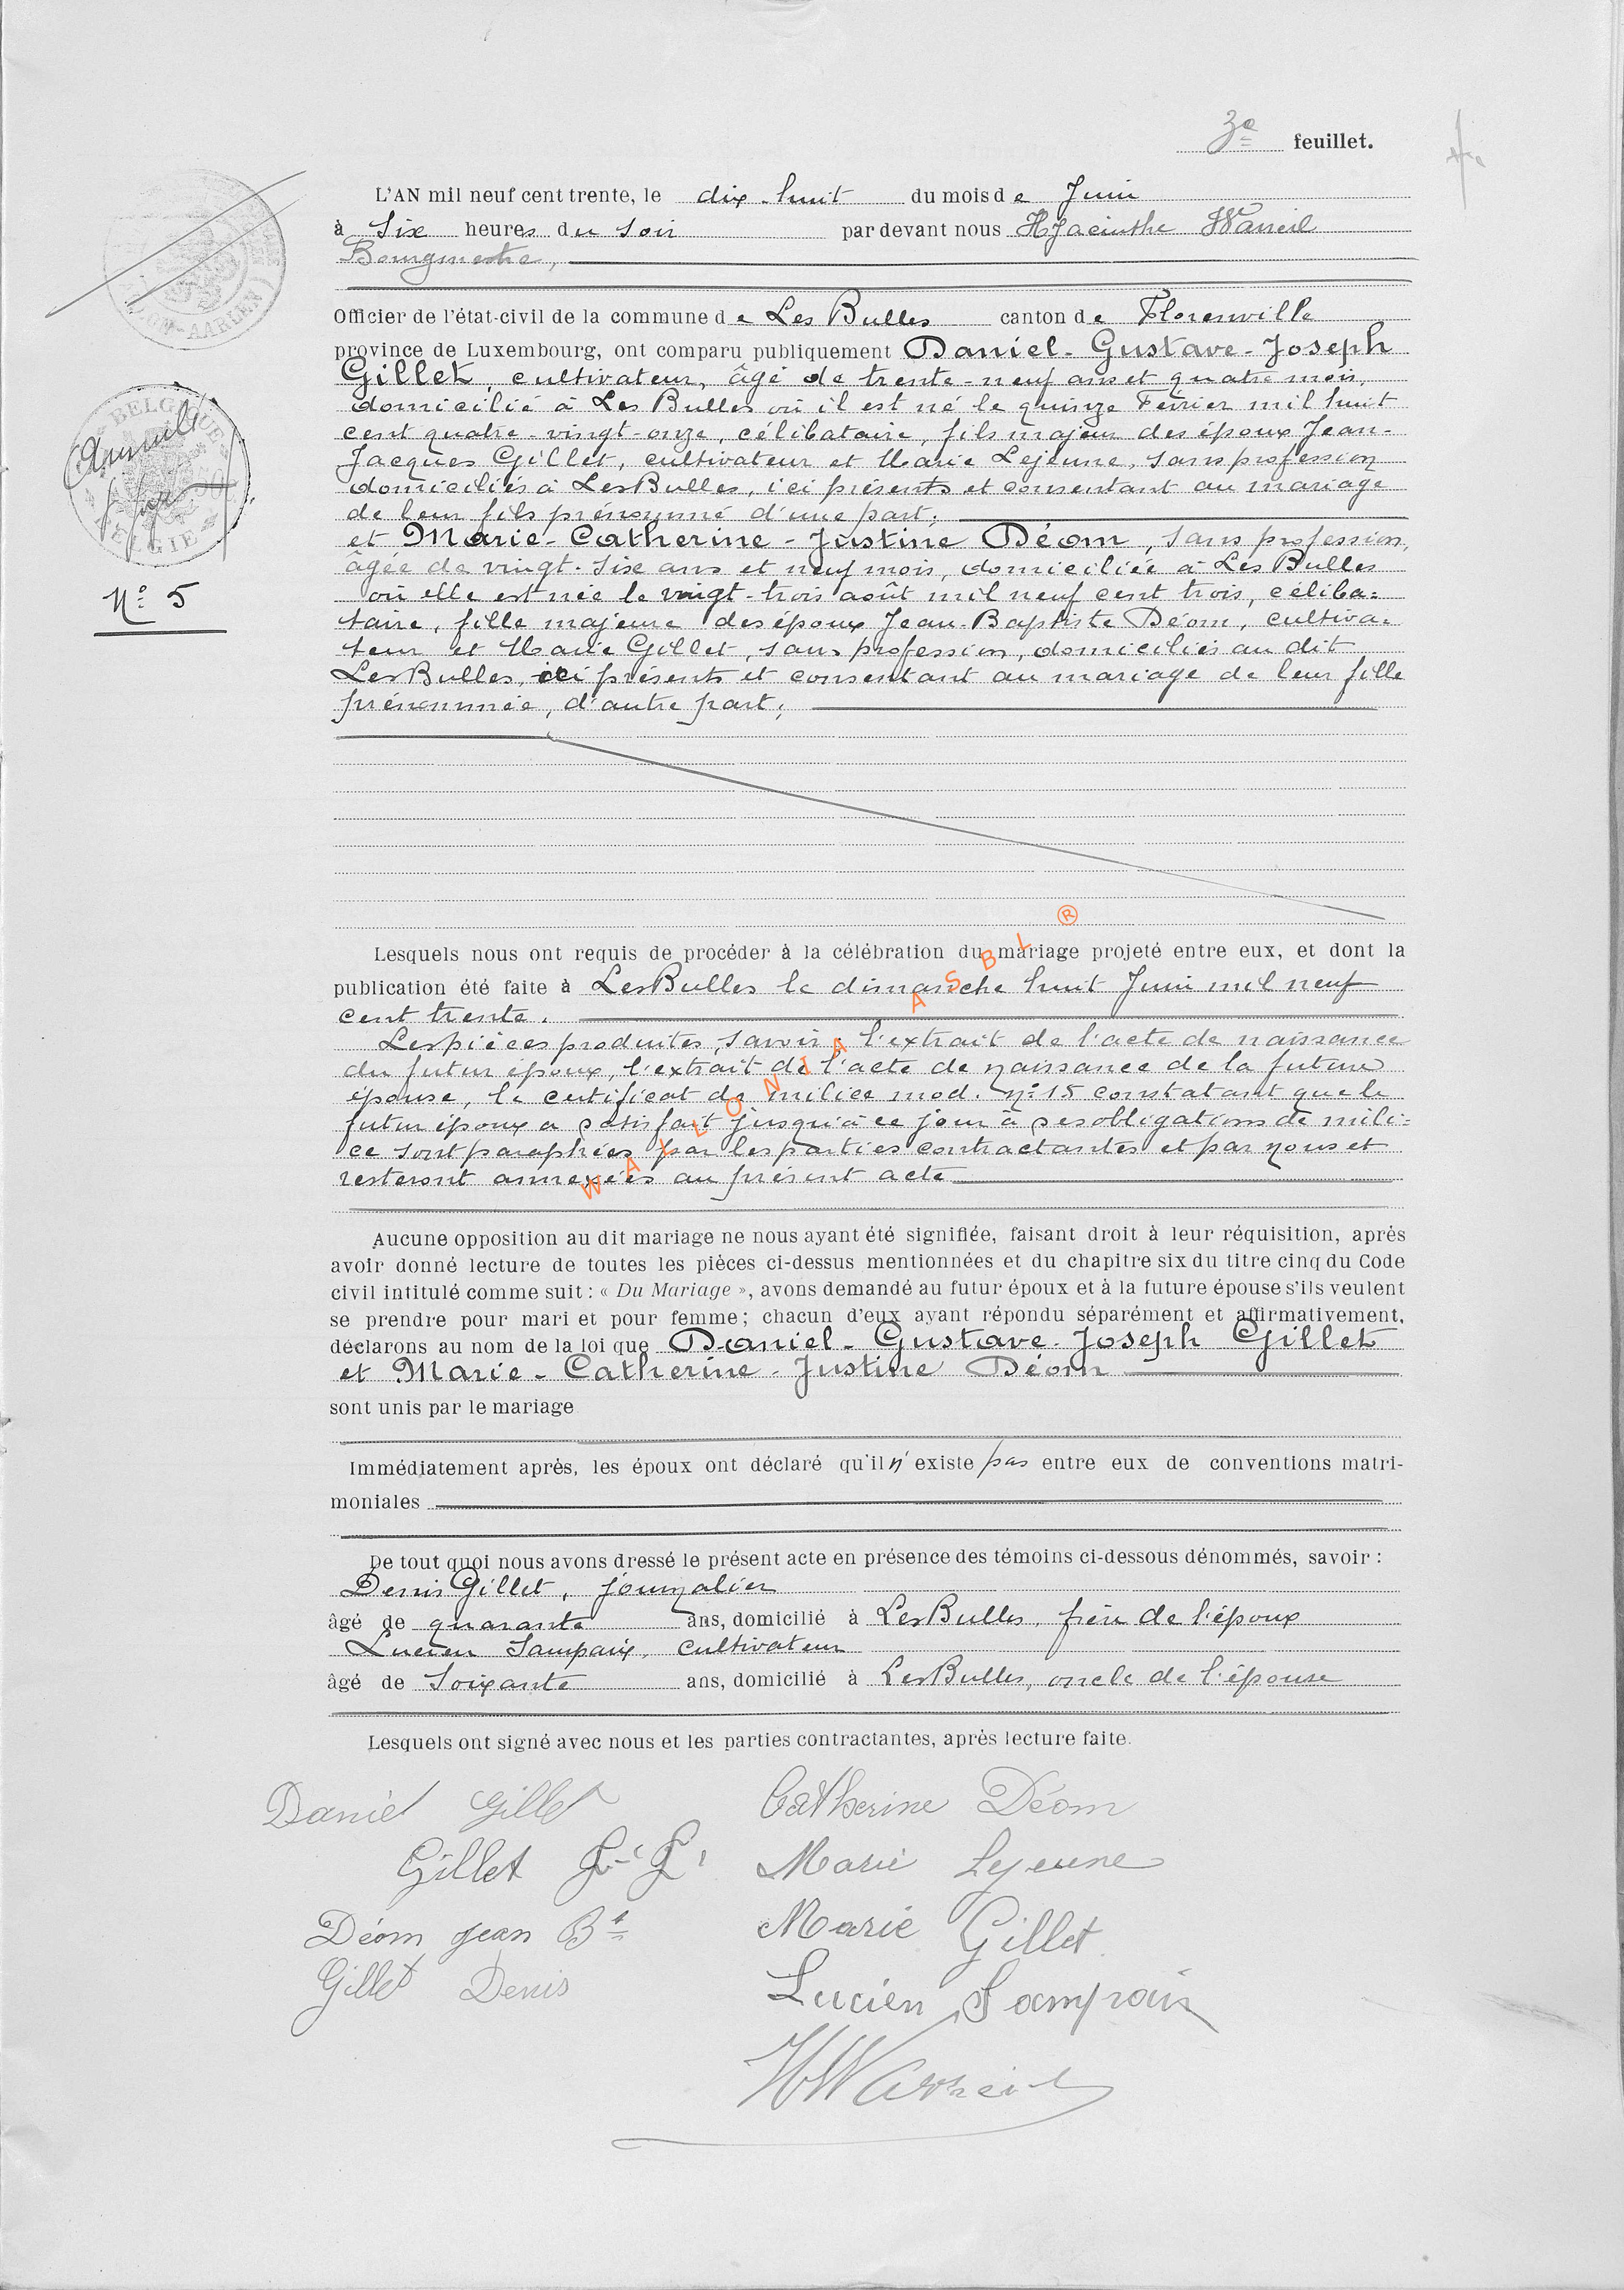 3e feuillet.
L'AN mil neuf cent trente, le dix-huit du mois de Juin
à six heures du soir par devant nous Hyacinthe
Bourgmestre,
Officier de l'état-civil de la commune de Les Bulles canton de Florenville
province de Luxembourg, ont comparu publiquement Daniel-Gustave-Joseph
Gillet, cultivateur, âgé de trente-neuf ans et quatre mois,
domicilié à Les Bulles où il est né le quinze Février mil huit
cent quatre-vingt-onze, célibataire, fils majeur des époux Jean-
Jacques Gillet, cultivateur et Marie Lejeune, sans profession
domiciliés à Les Bulles, ici présents et consentant au mariage
de leur fils prénommé d'une part;
et Marie-Catherine-Justine Déom, sans profession,
âgée de vingt-six ans et neuf mois, domiciliée à Les Bulles
où elle est née le vingt-trois août mil neuf cent trois, céliba=
taire, fille majeure des époux Jean-Baptiste Déom, cultiva=
teur et Marie Gillet, sans profession, domiciliés au dit
Les Bulles, ici présents et consentant au mariage de leur fille
prénommée, d'autre part;
BELGIQUE
BELGIE
Annulé
AARLEN
No 5
Lesquels nous ont requis de procéder à la célébration du mariage projeté entre eux, et dont la
publication été faite à Les Bulles le dimanche huit Juin mil neuf
cent trente.
Les pièces produites, savoir: l'extrait de l'acte de naissance
du futur époux, l'extrait de l'acte de naissance de la future
épouse, le certificat de milice mod. No 15 constatant que le
futur époux a satisfait jusqu'à ce jour à ses obligations de mili=
ce sont paraphées par les parties contractantes et par nous et
resteront annexées au présent acte
WALLONIA ASBL ®
Aucune opposition au dit mariage ne nous ayant été signifiée, faisant droit à leur réquisition, après
avoir donné lecture de toutes les pièces ci-dessus mentionnées et du chapitre six du titre cinq du Code
civil intitulé comme suit : « Du Mariage », avons demandé au futur époux et à la future épouse s'ils veulent
se prendre pour mari et pour femme; chacun d'eux ayant répondu séparément et affirmativement,
déclarons au nom de la loi que Daniel-Gustave-Joseph Gillet
et Marie-Catherine-Justine Déom
sont unis par le mariage
Immédiatement après, les époux ont déclaré qu'il n'existe pas entre eux de conventions matri-
moniales
De tout quoi nous avons dressé le présent acte en présence des témoins ci-dessous dénommés, savoir :
Denis Gillet, journalier
âgé de quarante ans, domicilié à Les Bulles, frère de l'époux
Lucien Sampaix, cultivateur
âgé de soixante ans, domicilié à Les Bulles, oncle de l'épouse
Lesquels ont signé avec nous et les parties contractantes, après lecture faite.
Daniel Gillet Catherine Déom
Gillet J-J Marie Lejeune
Déom Jean Bte Marie Gillet
Gillet Denis Lucien Sampaix